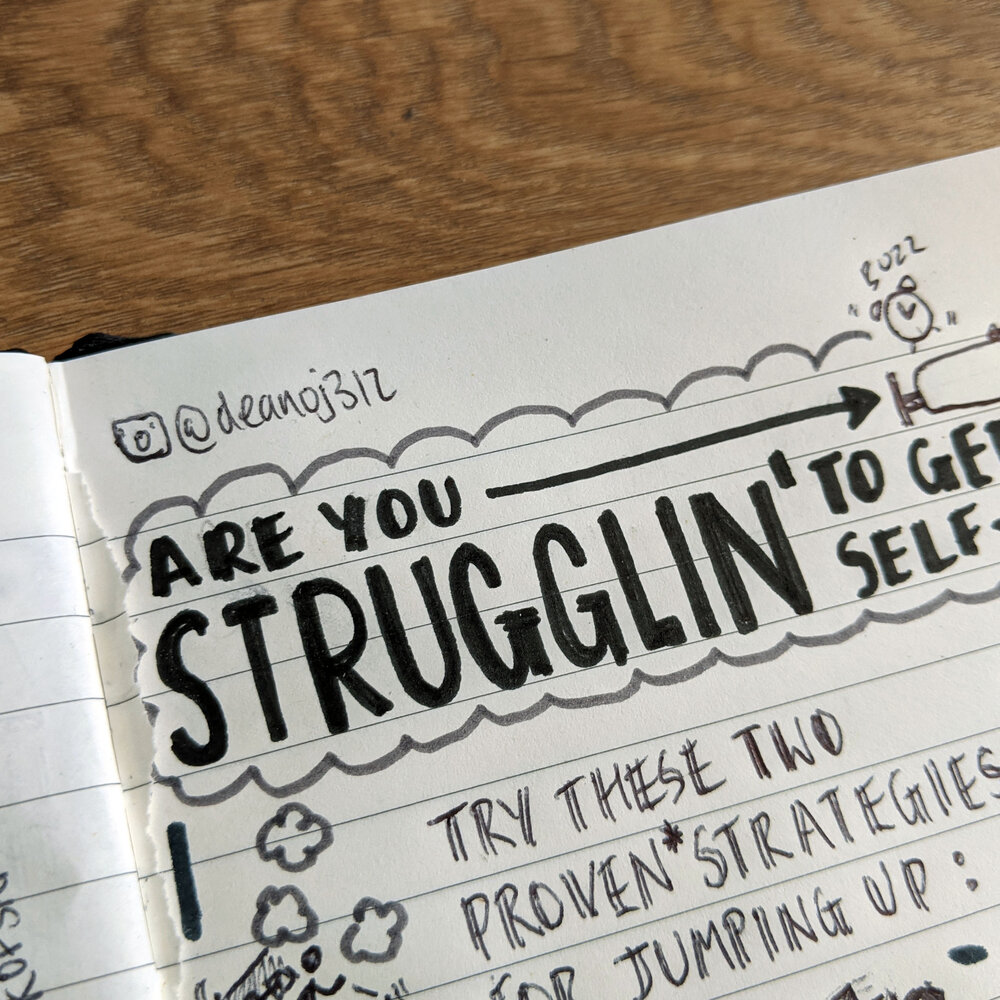 BUZZ
@deanoj312
ARE YOU
STRUGGLIN' TO GE
SELF-
TRY THESE TWO
PROVEN* STRATEGIES
FOR JUMPING UP: